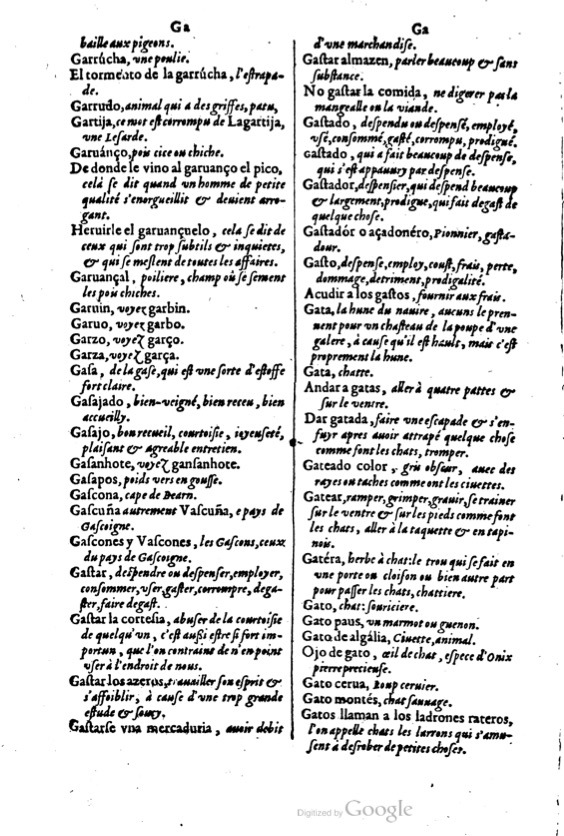 Ga
baille aux pigeons.
Garrúcha, vne poulie.
El tormēto de la garrúcha, l'estrapa-
de.
Garrudo, animal qui a des griffes, patu,
Gartija, ce mot est corrompu de Lagartija,
vne Lesarde.
Garuánço, pois cice ou chiche.
De donde le vino al garuanço el pico,
celà se dit quand vn homme de petite
qualité s'enorgueillit & deuient arro-
gant.
Heruirle el garuançuelo, cela se dit de
ceux qui sont trop subtils & inquietes,
& qui se meslent de toutes les affaires.
Garuançal, poiliere, champ où se sement
les pois chiches.
Garuin, voyez garbin.
Garuo, voyez garbo.
Garzo, voyez garço.
Garza, voyez garça.
Gasa, de la gase, qui est vne sorte d'estoffe
fort claire.
Gasajado, bien-veigné, bien receu, bien
accueilly.
Gasajo, bon recueil, courtoisie, ioyeuseté,
plaisant & agreable entretien.
Gasanhote, voyez gansanhote.
Gasapos, poids vers en gousse.
Gascona, cape de Bearn.
Gascuña autrement Vascuña, e pays de
Gascoigne.
Gascones y Vascones, les Gascons, ceux
du pays de Gascoigne.
Gastar, despendre ou despenser, employer,
consommer, vser, gaster, corrompre, dega-
ster, faire degast.
Gastar la cortesia, abuser de la courtoisie
de quelqu'vn, c'est aussi estre si fort im-
portun, que l'on contraint de n'en point
vser à l'endroit de nous.
Gastar los azeros, trauailler son esprit &
s'affoiblir, à cause d'vne trop grande
estude & soucy.
Gastarse vna mercaduria, auoir debit
Ga
d'vne marchandise.
Gastar almazen, parler beaucoup & sans
substance.
No gastar la comida, ne digerer pas la
mangealle ou la viande.
Gastado, despendu ou despensé, employé,
vsé, consommé, gasté, corrompu, prodigué.
Gastado, qui a fait beaucoup de despense,
qui s'est appauury par despense.
Gastador, despensier, qui despend beaucoup
& largement, prodigue, qui fait degast de
quelque chose.
Gastadór o açadonéro, Pionnier, gasta-
dour.
Gasto, despense, employ, coust, frais, perte,
dommage, detriment, prodigalité.
Acudir a los gastos, fournir aux frais.
Gata, la hune du nauire, aucuns le pren-
nent pour vn chasteau de la poupe d'vne
galere, à cause qu'il est hault, mais c'est
proprement la hune.
Gata, chatte.
Andar a gatas, aller à quatre pattes &
sur le ventre.
Dar gatada, faire vne escapade & s'en-
fuyr apres auoir attrapé quelque chose
comme font les chats, tromper.
Gateado color, gris obscur, auec des
rayes ou taches comme ont les ciuettes.
Gatear, ramper, grimper, grauir, se trainer
sur le ventre & sur les pieds comme font
les chats, aller à la taquette & en tapi-
nois.
Gatéra, herbe à chat: le trou qui se fait en
vne porte ou cloison ou bien autre part
pour passer les chats, chattiere.
Gato, chat: souriciere.
Gato paus, vn marmot ou guenon.
Gato de algália, Ciuette, animal.
Ojo de gato, œil de chat, espece d'Onix
pierre precieuse.
Gato cerua, Loup ceruier.
Gato montés, chat sauuage.
Gatos llaman a los ladrones rateros,
l'on appelle chats les larrons qui s'amu-
sent à desrober de petites choses.
Digitized by Google